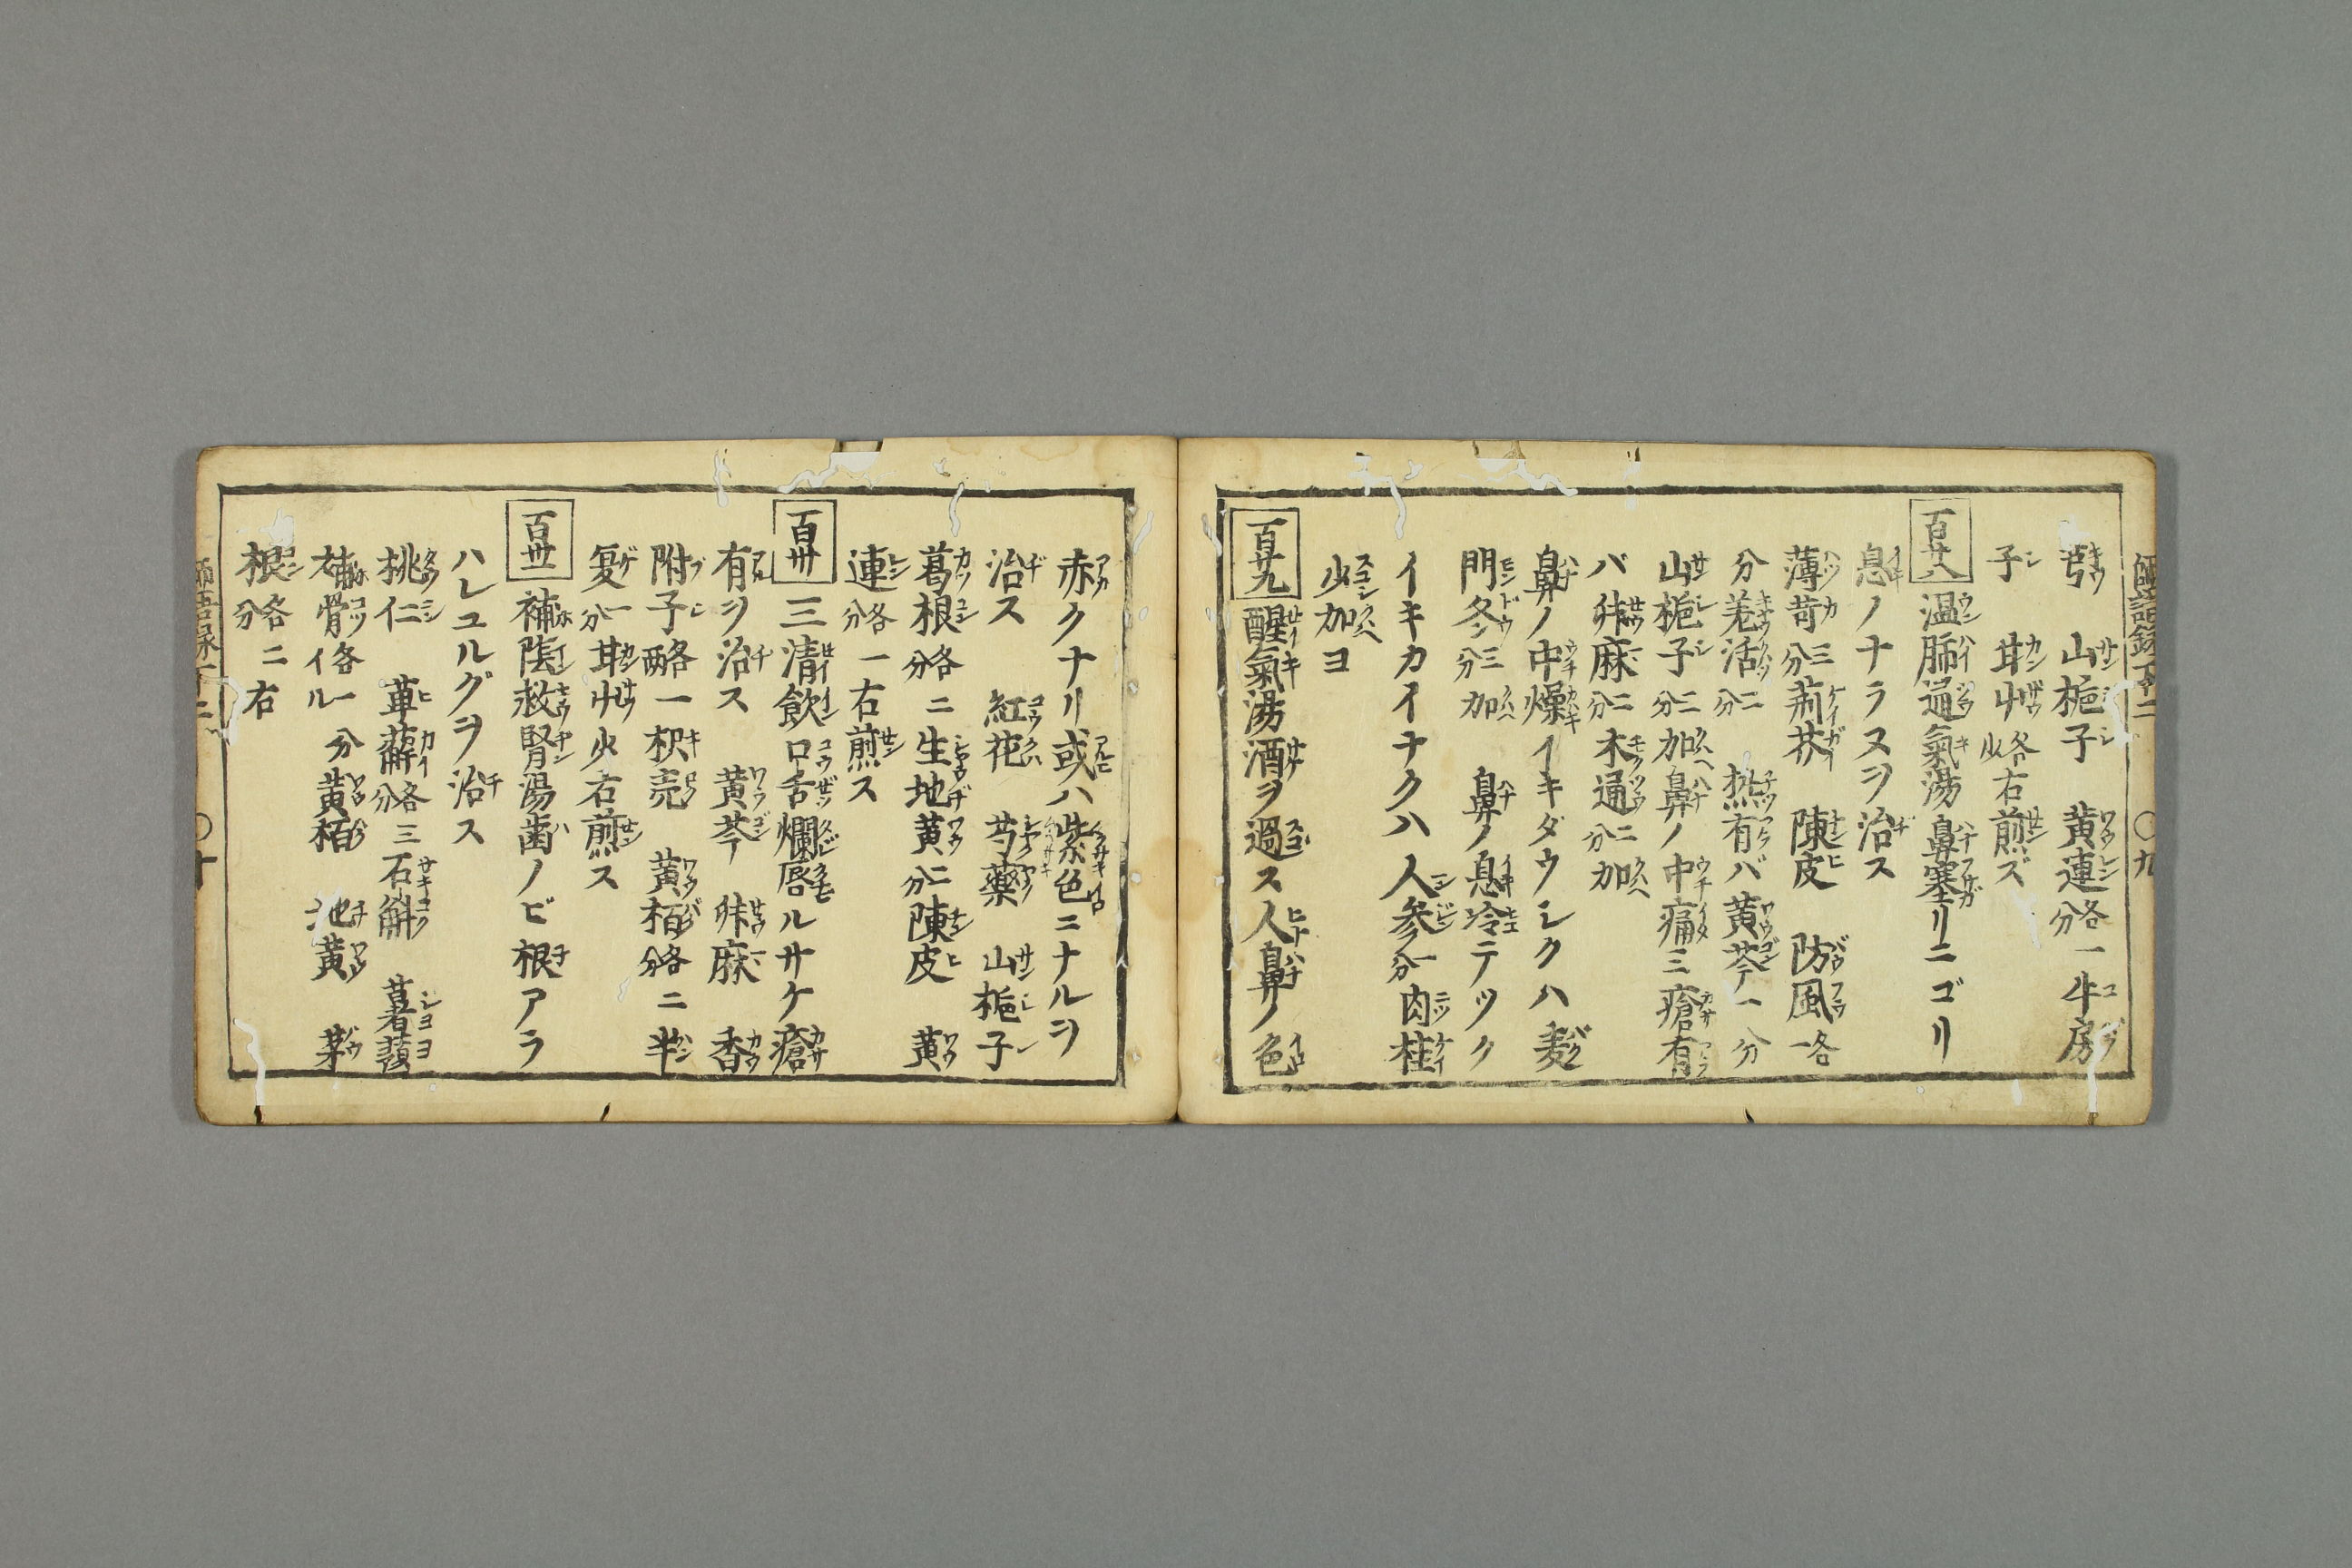 芎 山梔子 黄連各一分 牛房
子 甘艸各略少 右煎ズ
百廿八 温肺通氣湯 鼻塞リニゴリ
息ノナラヌヲ治ス
薄苛三分 荊芥 陳皮 防風各一
分 羌活二分 熱有バ黄芩一分
山梔子二分加 鼻ノ中痛ミ瘡有
バ升麻二分 木通二分加
鼻ノ中燥イキダウシクハ麦
門冬三分加 鼻ノ息冷テツク
イキカイナクハ人参一分 肉桂
少加ヨ
百廿九 醒氣湯 酒ヲ過ス人鼻ノ色
赤クナリ或ハ紫色ニナルヲ
治ス 紅花 芍藥 山梔子
葛根各二分 生地黄二分 陳皮 黄
連各一分 右煎ス
百卅 三清飲 口舌爛唇ルサケ瘡
有ヲ治ス 黄芩 升麻 香
附子各一両 枳壳 黄栢各二分半
夏一分 甘艸少 右煎ス
百卅一 補陰救腎湯 歯ノビ根アラ
ハレユルグヲ治ス
桃仁 萆薢各三分 石斛 薯蕷
補骨各一分イル 黄栢 地黄 茅
根各二分 右